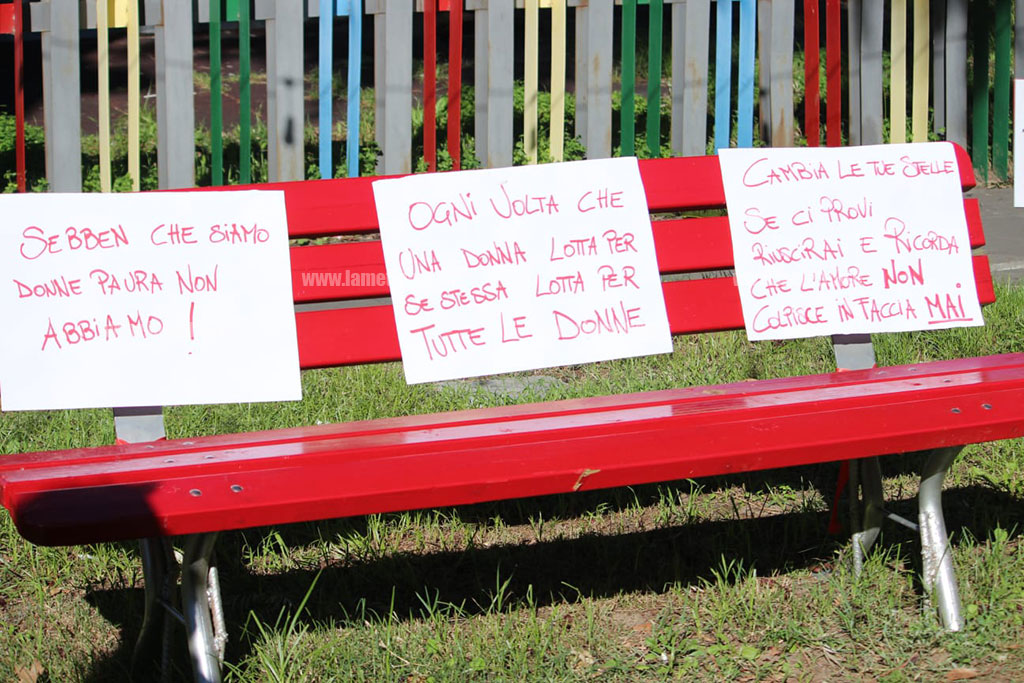 SEBBEN CHE SIAMO
DONNE PAURA NON
ABBIAMO !
OGNI VOLTA CHE
UNA DONNA LOTTA PER
SE STESSA LOTTA PER
TUTTE LE DONNE
CAMBIA LE TUE STELLE
SE CI PROVI
RIUSCIRAI E RICORDA
CHE L'AMORE NON
COLPISCE IN FACCIA MAI
www.lame